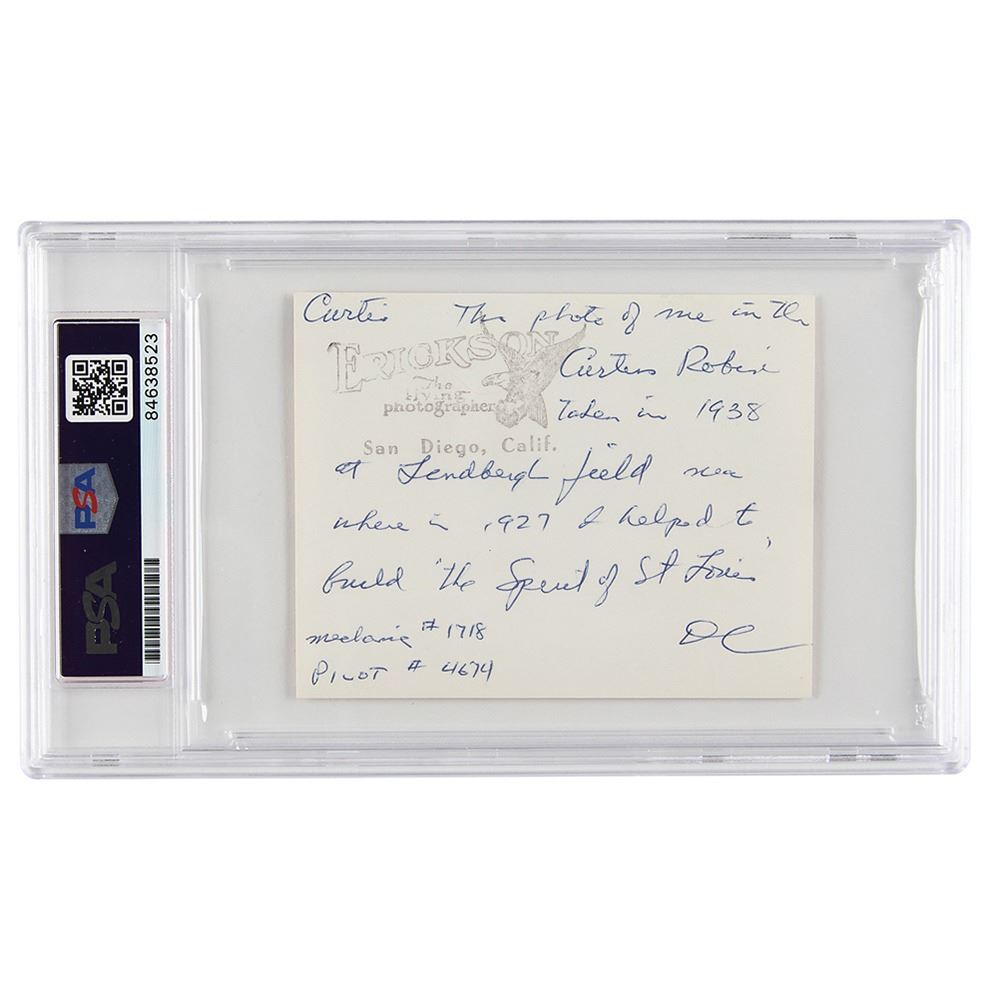 84638523
PSA
PSA
Curtis This photo of me in the
ERICKSON
The
Flying
photographer
Curtiss Robin
Taken in 1938
San Diego, Calif.
at Lindbergh field near
where in 1927 I helped to
build "the Spirit of St Louis"
mechanic # 1718
DC
PILOT # 4674